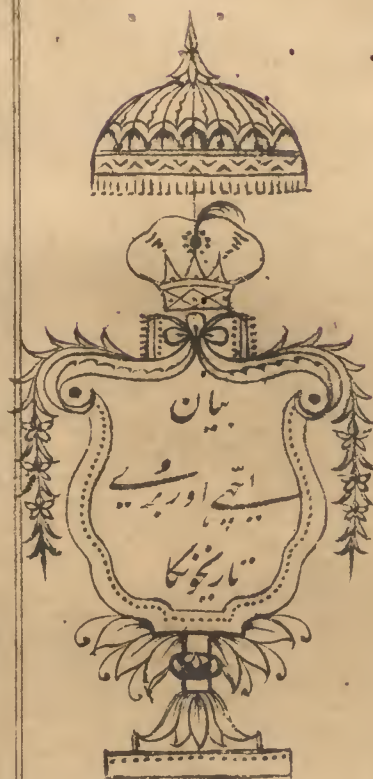 بیان
اچھے اور بُرے
تاریخونکا